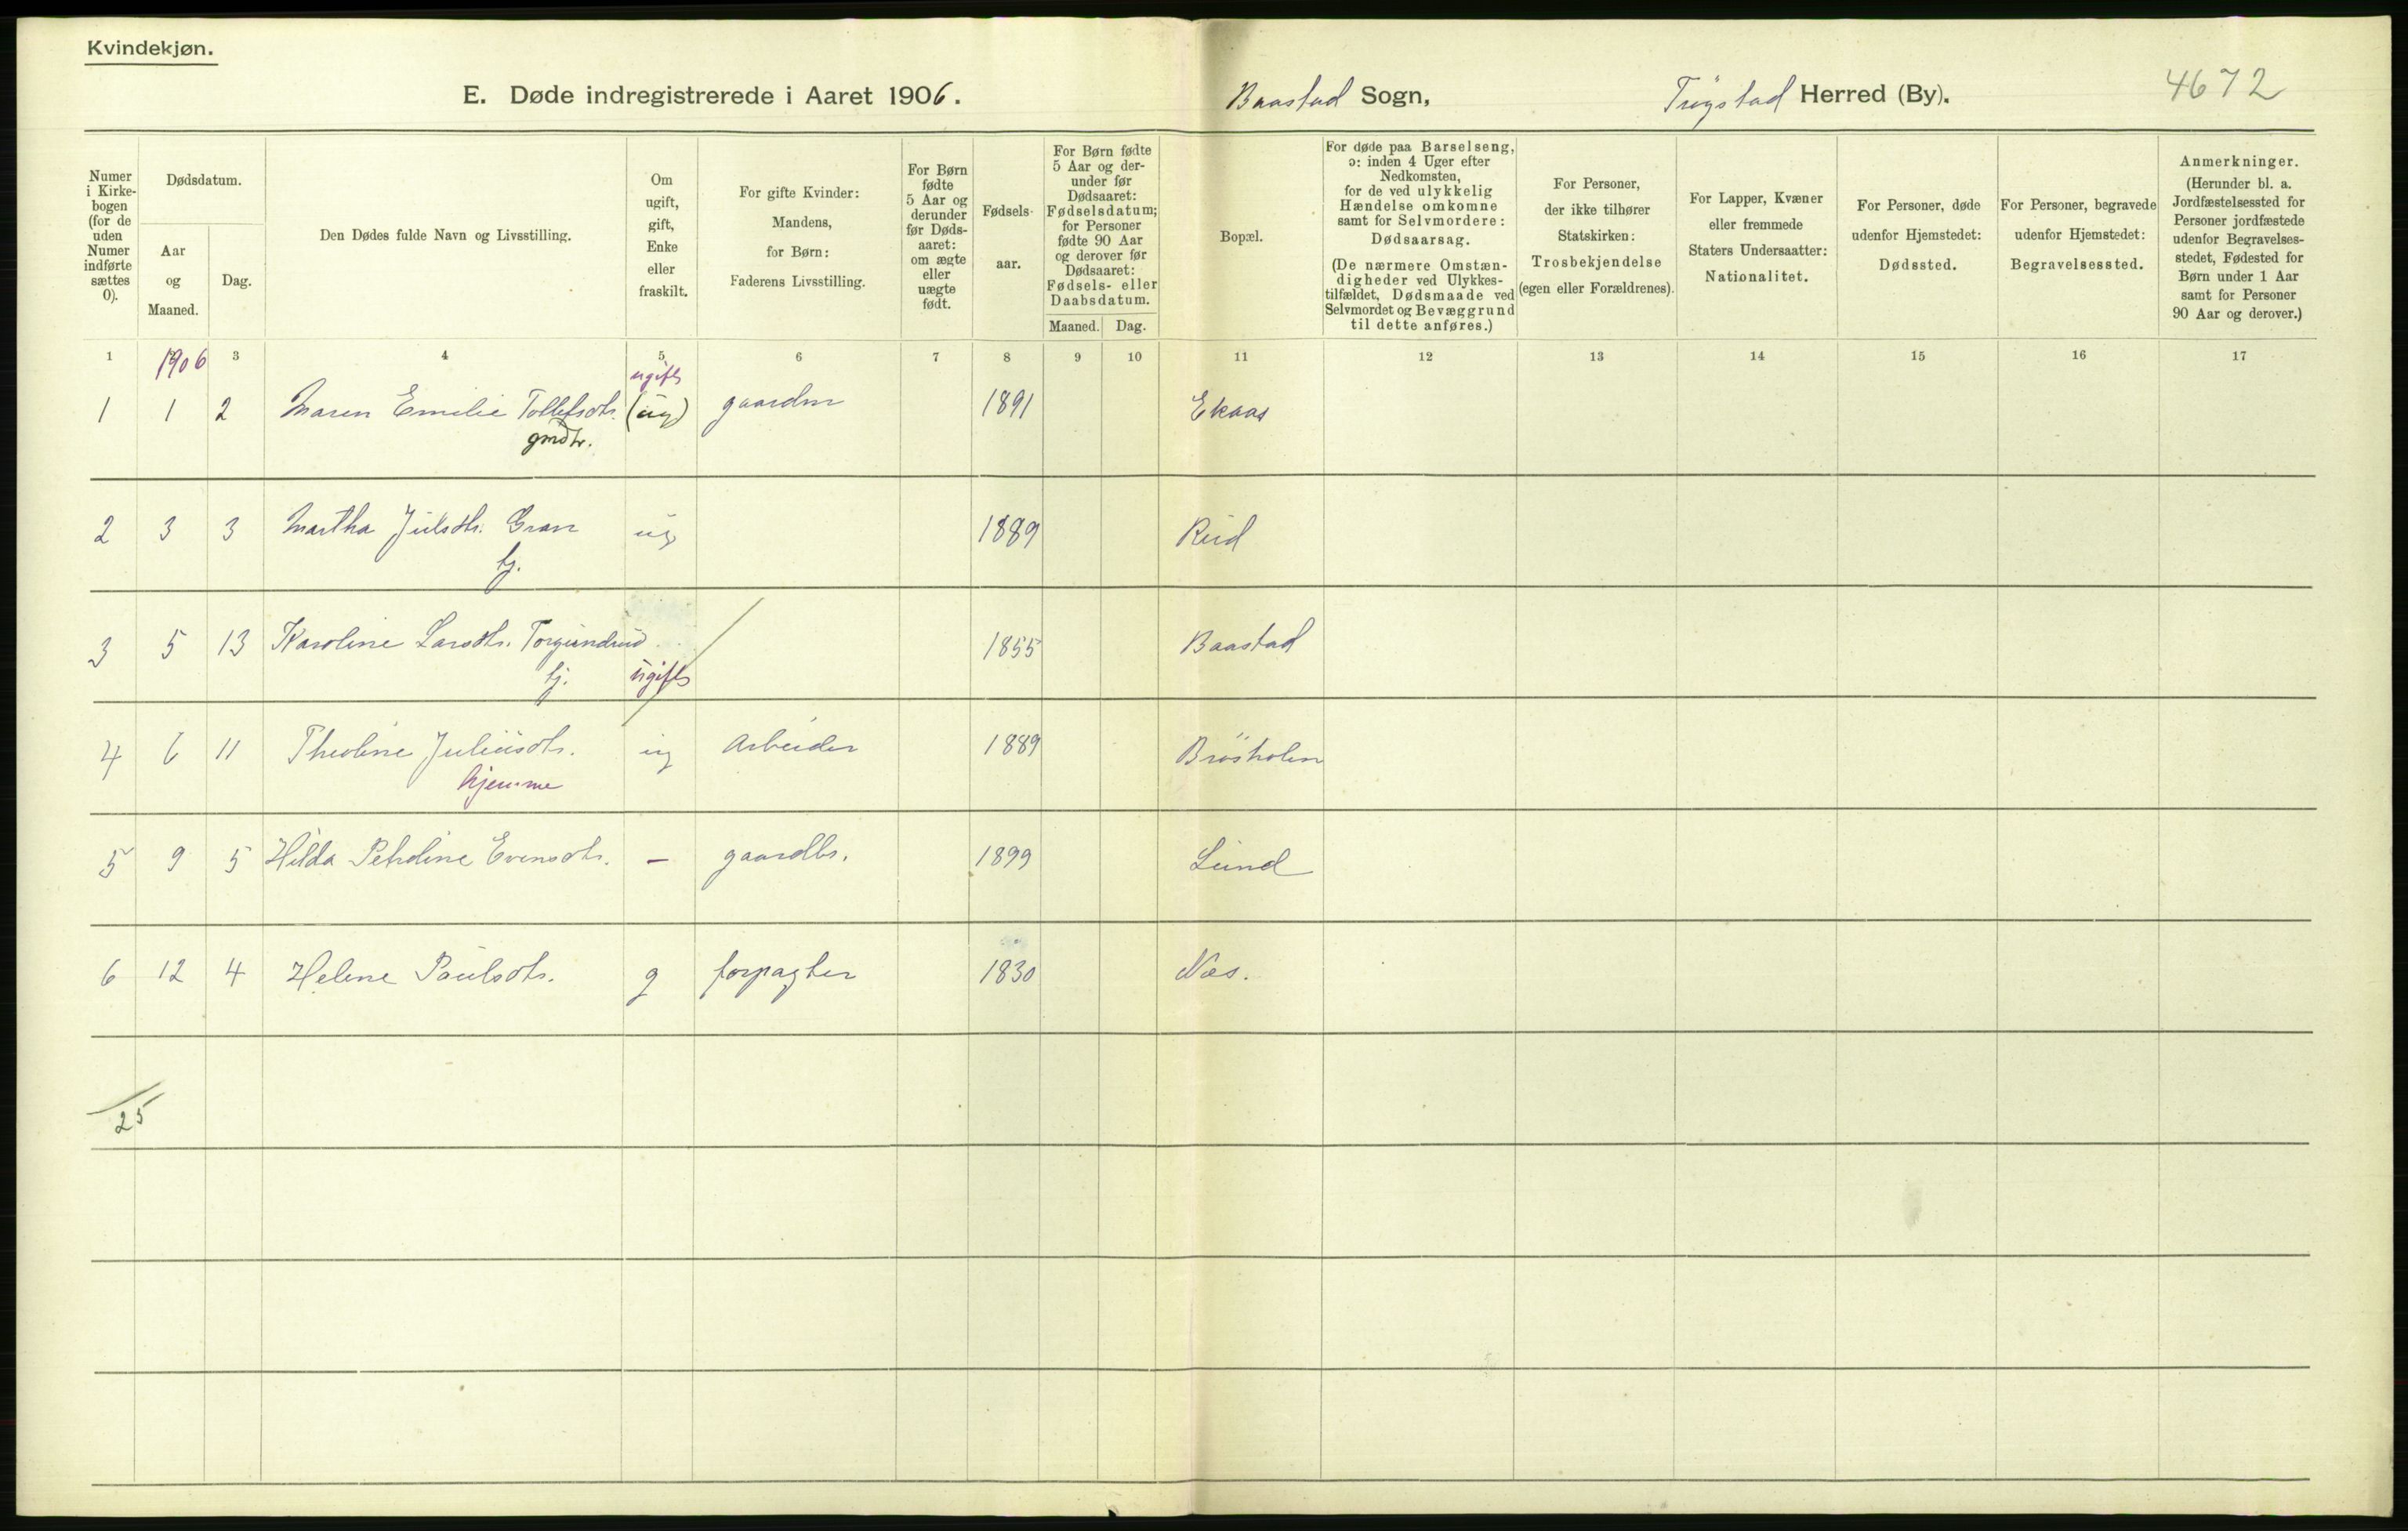 Kvindekjøn.
E. Døde indregistrerede i Aaret 1906.
Baastad Sogn, Trøgstad Herred (By). 4672
Numer i Kirke-bogen (for de uden Numer indførte sættes 0).
Dødsdatum.
Aar og Maaned.
Dag.
Den Dødes fulde Navn og Livsstilling.
Om ugift, gift, Enke eller fraskilt.
For gifte Kvinder: Mandens, for Børn: Faderens Livsstilling.
For Børn fødte 5 Aar og derunder før Døds-aaret: om ægte eller uægte født.
Fødsels-aar.
For Børn fødte 5 Aar og der-under før Dødsaaret: Fødselsdatum; for Personer fødte 90 Aar og derover før Dødsaaret: Fødsels- eller Daabsdatum.
Maaned. Dag.
Bopæl.
For døde paa Barselseng, ɔ: inden 4 Uger efter Nedkomsten, for de ved ulykkelig Hændelse omkomne samt for Selvmordere: Dødsaarsag. (De nærmere Omstæn-digheder ved Ulykkes-tilfældet, Dødsmaade ved Selvmordet og Bevæggrund til dette anføres.)
For Personer, der ikke tilhører Statskirken: Trosbekjendelse (egen eller Forældrenes).
For Lapper, Kvæner eller fremmede Staters Undersaatter: Nationalitet.
For Personer, døde udenfor Hjemstedet: Dødssted.
For Personer, begravede udenfor Hjemstedet: Begravelsessted.
Anmerkninger. (Herunder bl. a. Jordfæstelsessted for Personer jordfæstede udenfor Begravelses-stedet, Fødested for Børn under 1 Aar samt for Personer 90 Aar og derover.)
1 3 4 5 6 7 8 9 10 11 12 13 14 15 16 17
1906 ugift
1 1 2 Maren Emilie Tollefsdtr. (ug) gaardm 1891 Ekaas
gmdtr.
2 3 3 Martha Julsdtr. Gran ug 1889 Rud
tj.
3 5 13 Karoline Larsdtr. Torgundrud 1855 Baastad
tj. ugift
4 6 11 Theoline Juliusdtr. ug Arbeider 1889 Brøsholen
hjemme
5 9 5 Hilda Petroline Evensdtr. — gaardbr. 1899 Lund
6 12 4 Helene Paulsdtr. g forpagter 1830 Næs.
25